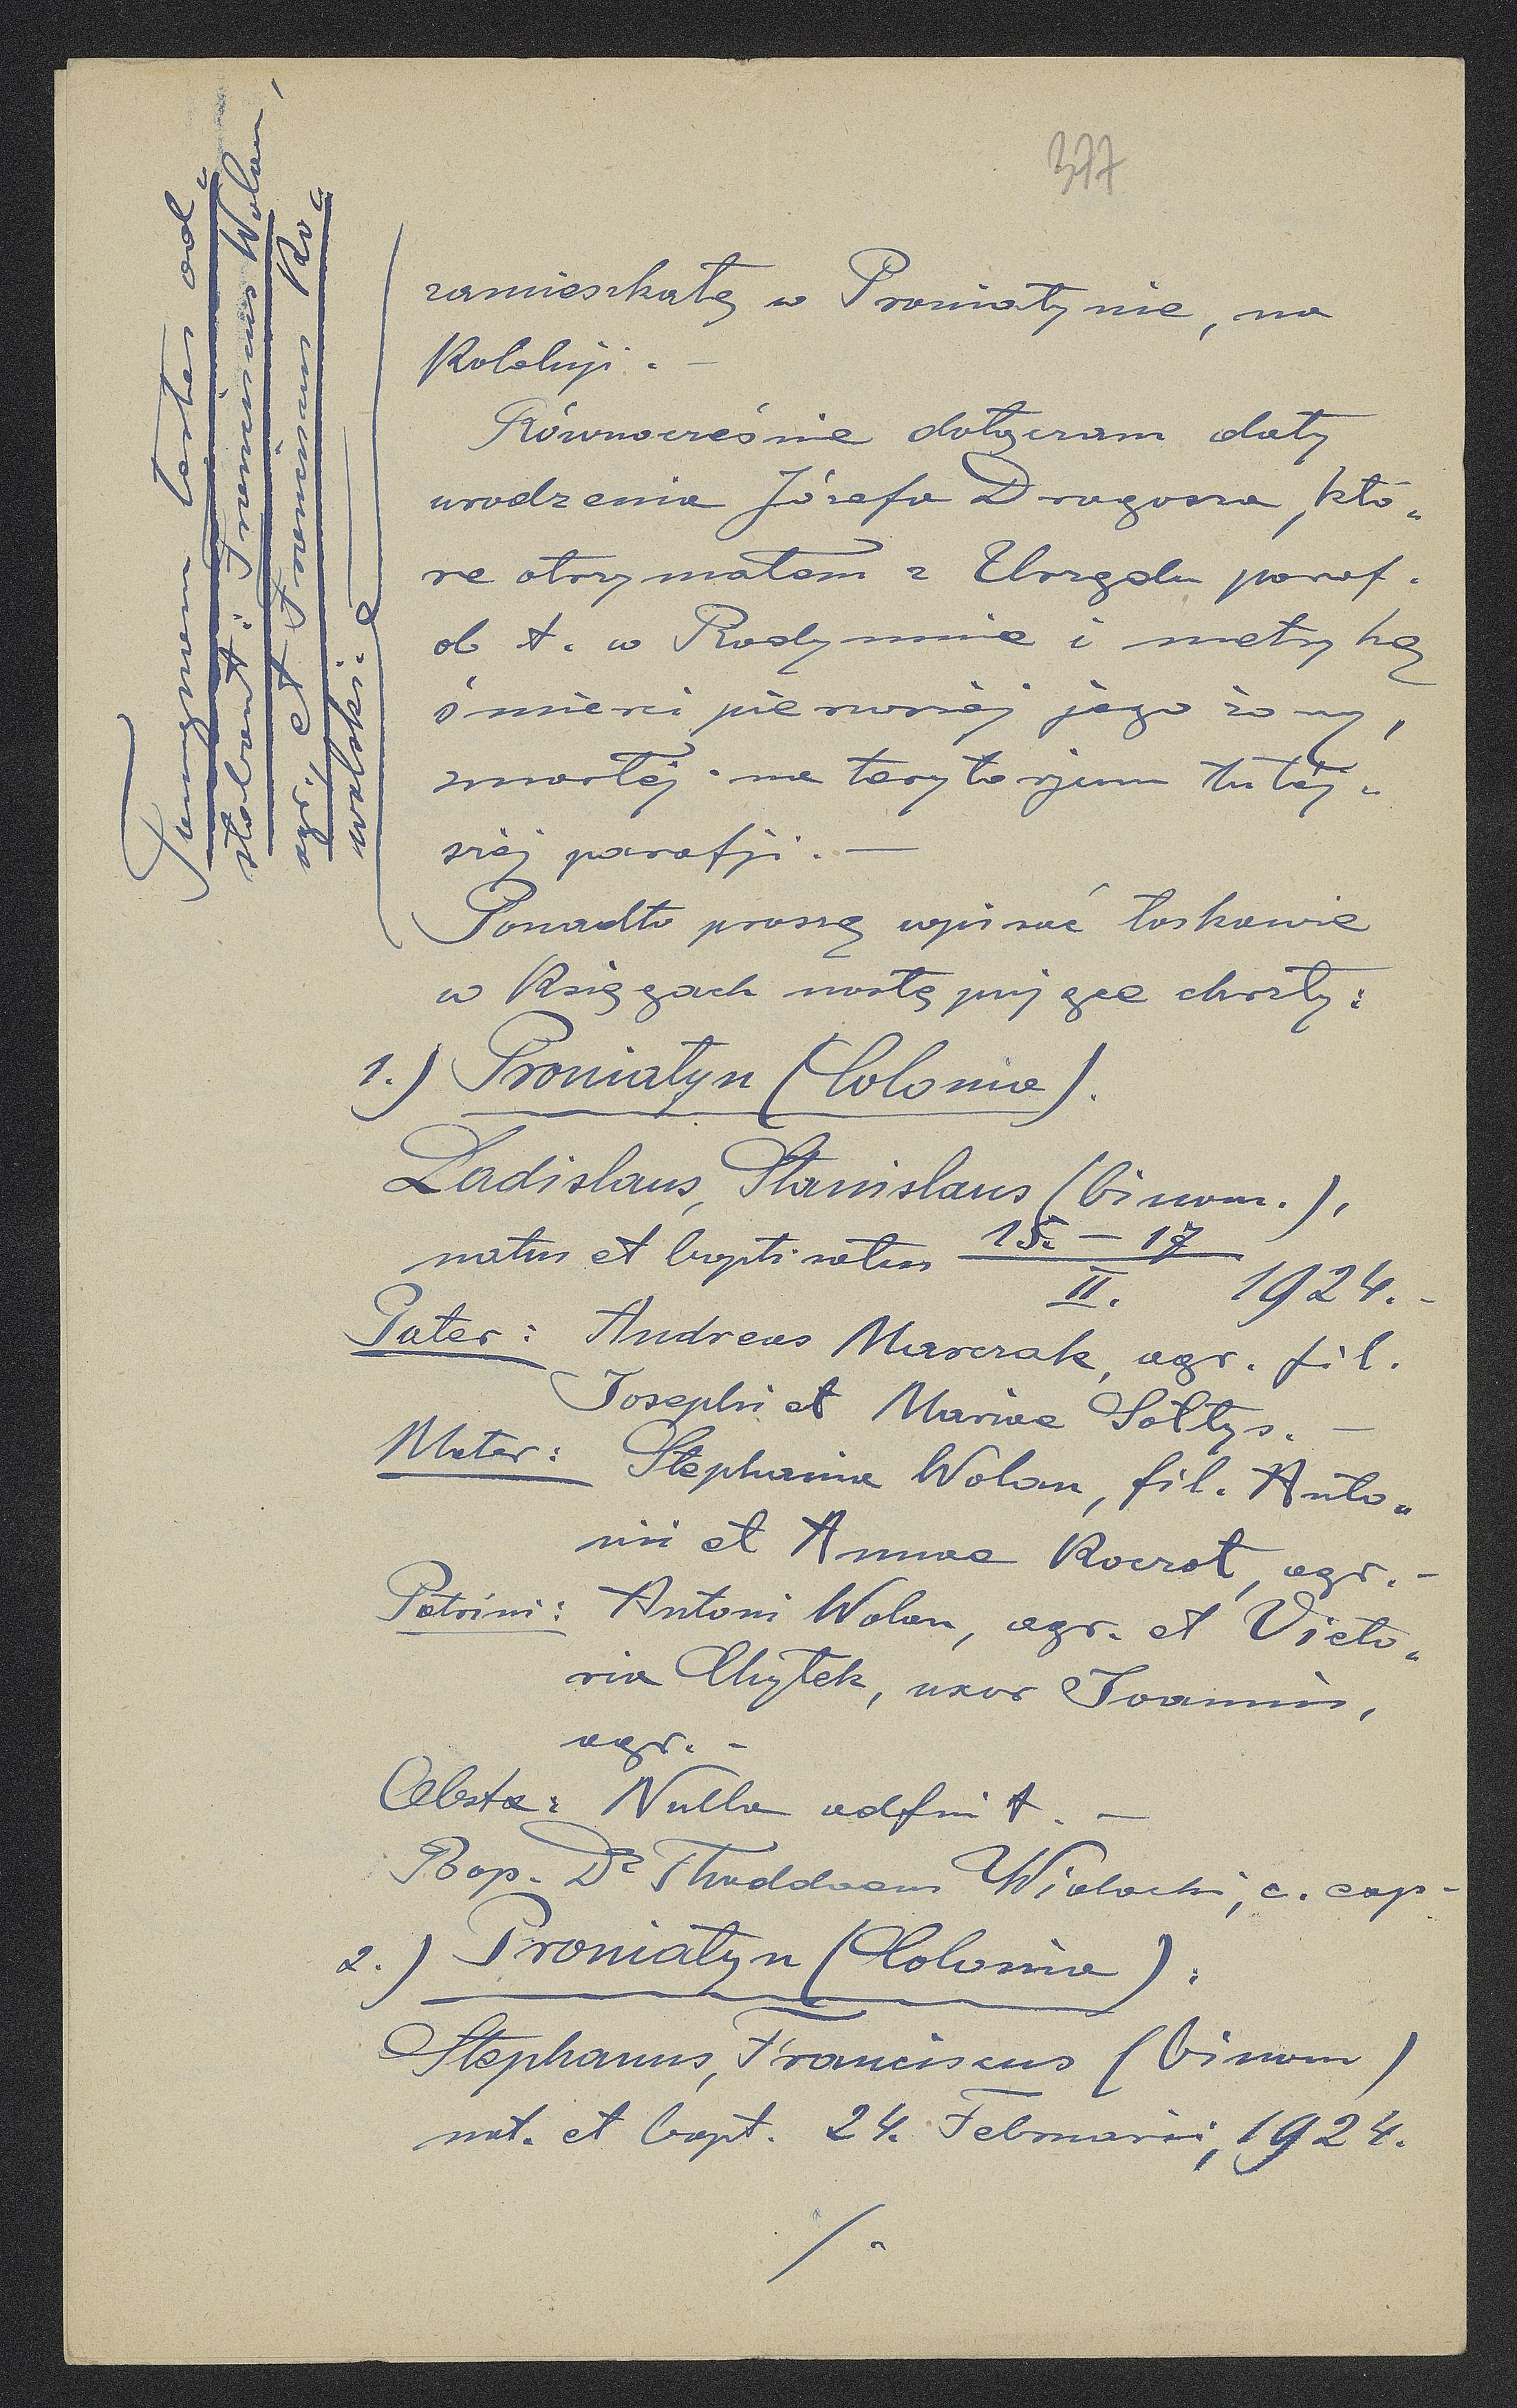 377
Tamquam testes ad„
stabant: Franciscus Wolan,
agr. et Franciscus Ko„
walski.
zamieszkałą w Proniatynie, na
Kolonji. —
Równocześnie dołączam daty
urodzenia Józefa Dragosza, któ„
re otrzymałem z Urzędu paraf.
ob ł. w Radymnie i metrykę
śmierci pierwszéj jego żony,
zmarłéj na terytorjum tutéj„
széj parafji. —
Ponadto proszę wpisać łaskawie
w Księgach następujące chrzty:
1.) Proniatyn (Colonia).
Ladislaus, Stanislaus (binom.),
natus et baptisatus 15. — 17
II. 1924. -
Pater: Andreas Marczak, agr. fil.
Josephi et Mariae Sołtys. —
Mater: Stephania Wolan, fil. Anto„
nii et Annae Koczot, agr. -
Patrini: Antoni Wolan, agr. et Victo„
ria Chytek, uxor Joannis,
agr. -
Obste: Nulla adfuit. —
Bap. Dr Thaddaeus c. cap-
2.) Proniatyn (Colonia):
Stephanus, Franciscus (binom)
nat. et bapt. 24. Februarii, 1924.
/.